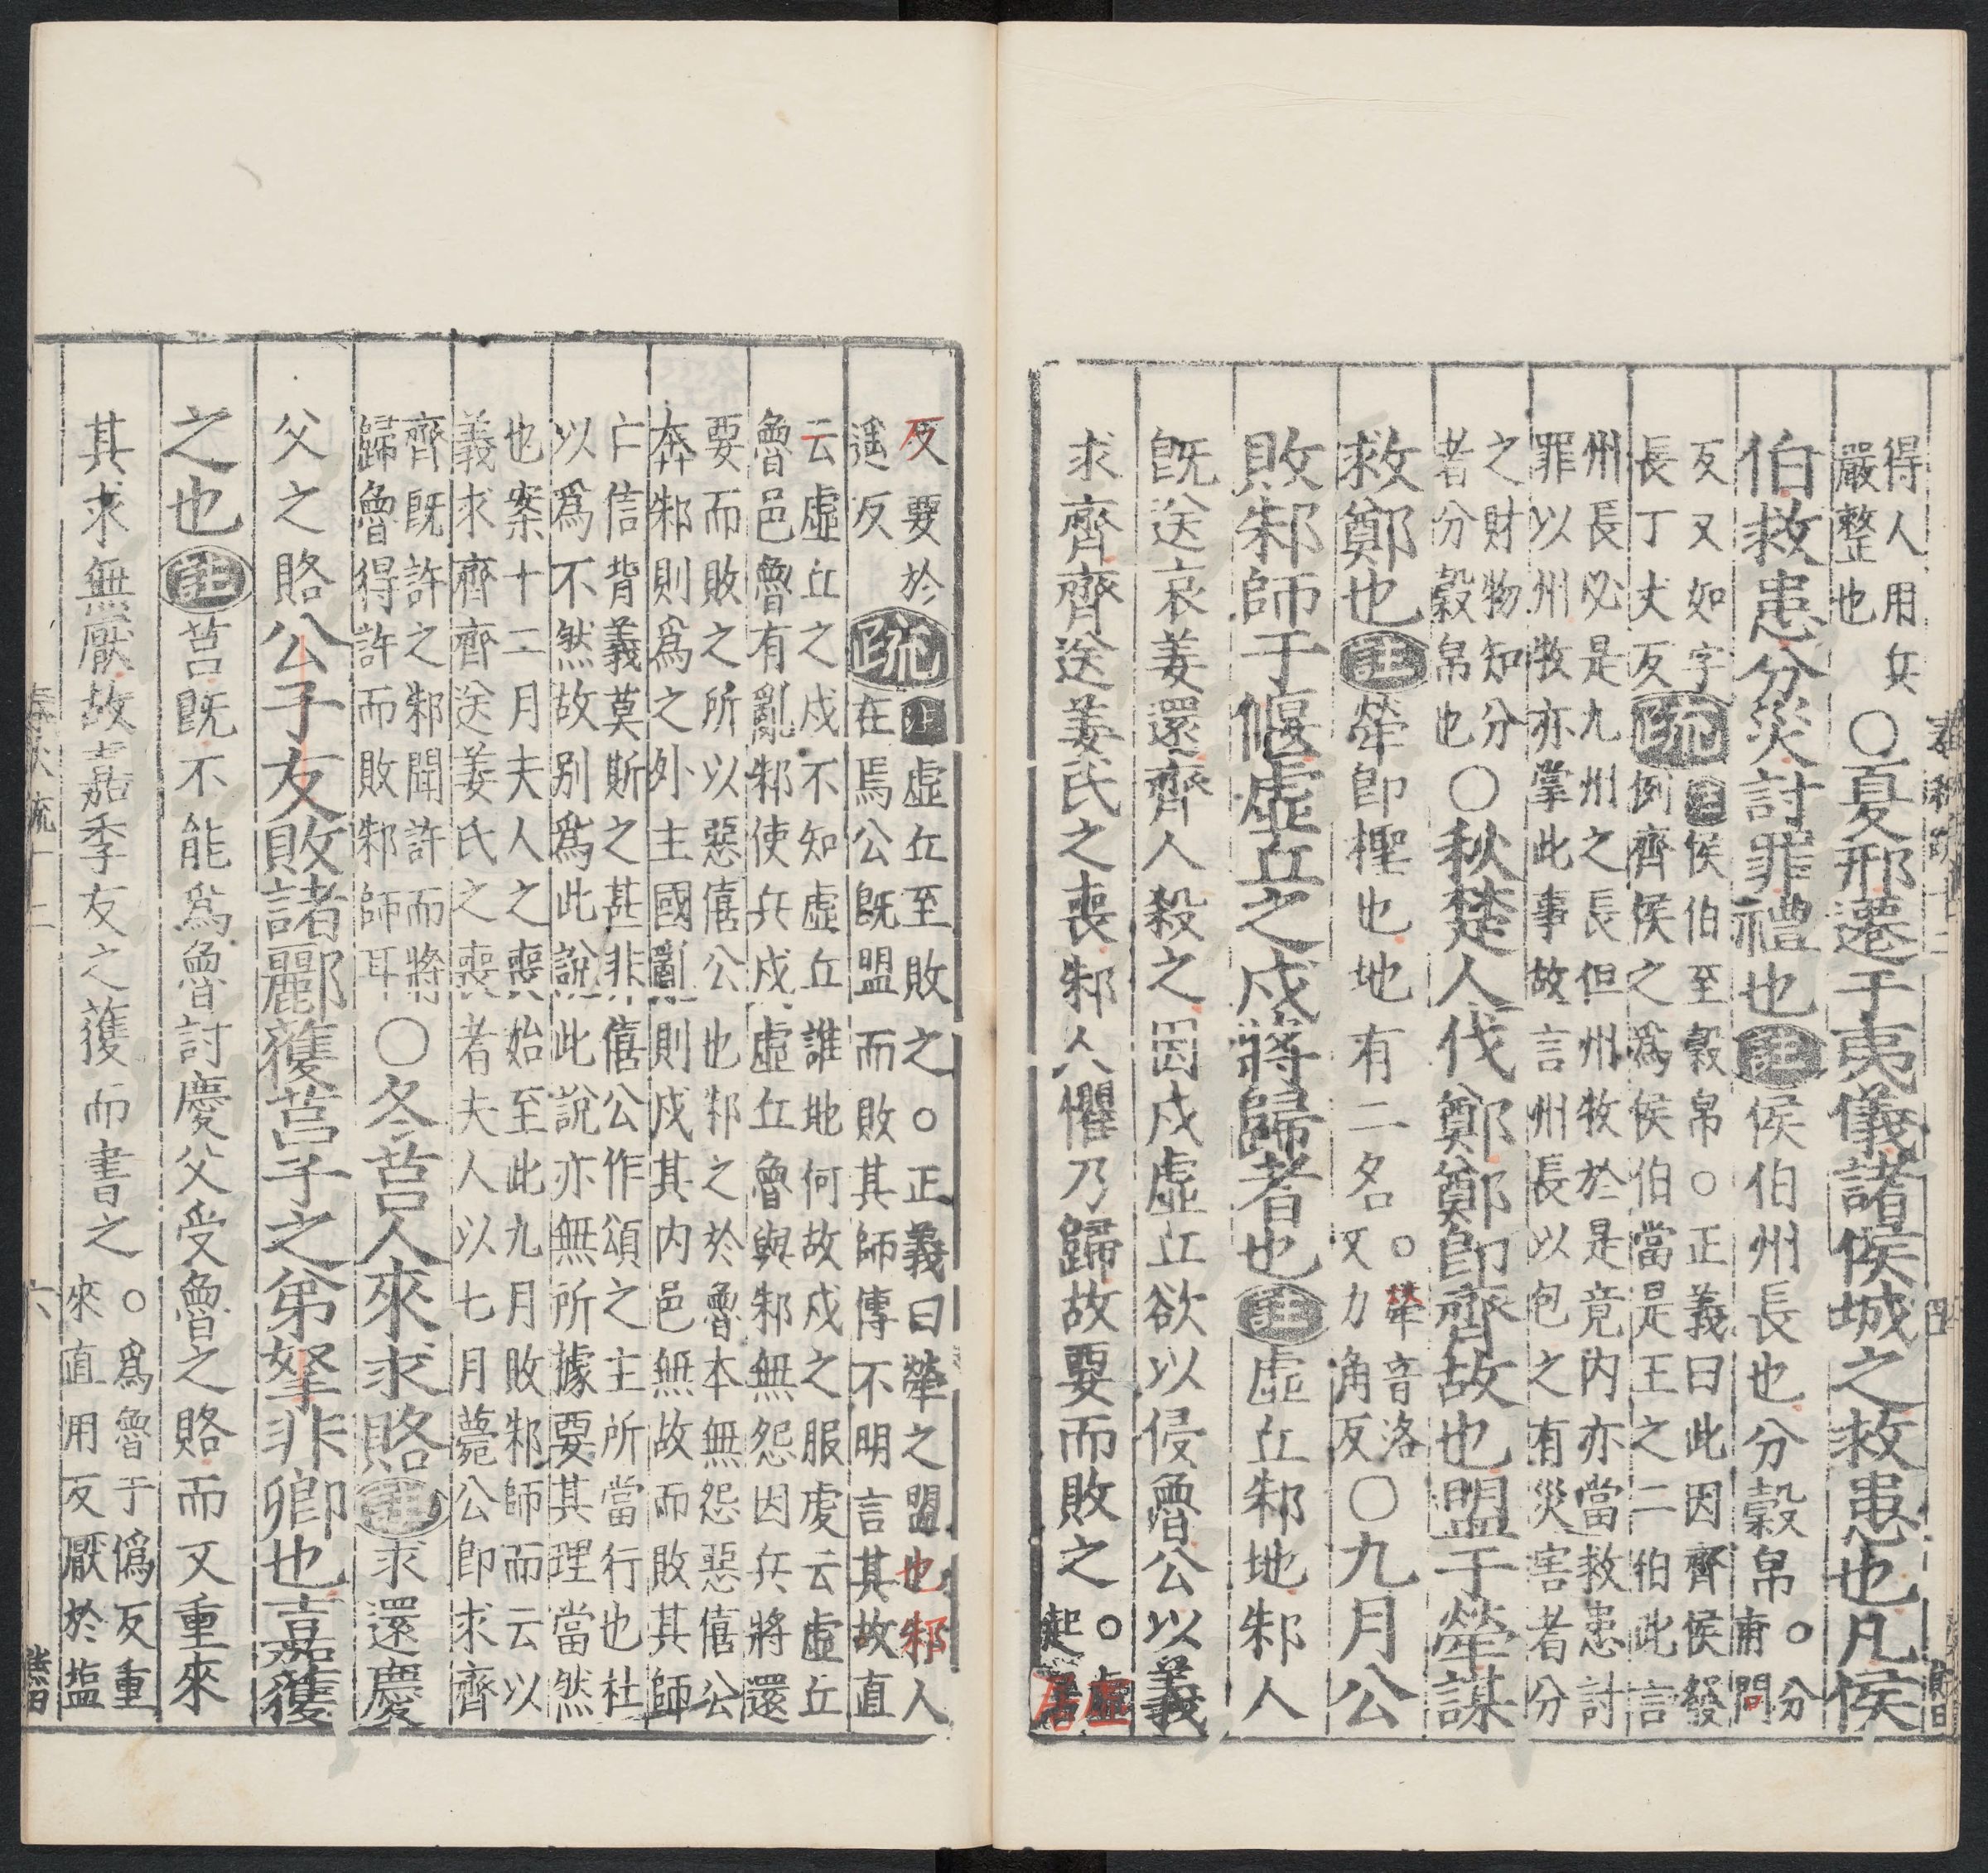 得人用兵嚴整也〇夏邢遷于夷儀諸侯城之救患也凡侯
伯救患分災討罪禮也註侯伯州長也分穀帛○分甫問
反又如字長丁丈反疏注侯伯至穀帛○正義曰此因齊侯發
例齊侯之爲侯伯當是王之二伯此言
州長必是九州之長但州牧於是竟内亦當救患討
罪以州牧亦掌此事故言州長以包之有災害者分
之財物知分者分穀帛也〇秋楚人伐鄭鄭即齊故也盟于犖謀
救鄭也註犖即檉也地有二名○犖音洛又力角反〇九月公
敗邾師于偃虛丘之戍將歸者也註虛丘邾地邾人
既送哀姜還齊人殺之因戍虛丘欲以侵魯公以義
求齊齊送姜氏之喪邾人懼乃歸故要而敗之○虛起居
反要於遥反疏注虛丘至敗之○正義曰犖之盟也邾人
在焉公既盟而敗其師傳不明言其故直
云虛丘之戍不知虛丘誰地何故戍之服虔云虛丘
魯邑魯有亂邾使兵戍虛丘魯與邾無怨因兵將還
要而敗之所以惡僖公也邾之於魯本無怨惡僖公
奔邾則爲之外主國亂則戍其内邑無故而敗其師
亡信背義莫斯之甚非僖公作頌之主所當行也杜
以爲不然故别爲此說此說亦無所據要其理當然
也案十二月夫人之喪始至此九月敗邾師而云以
義求齊齊送姜氏之喪者夫人以七月薨公即求齊
齊既許之邾聞許而將歸魯得許而敗邾師耳〇冬莒人來求賂註求還慶
父之賂公子友敗諸酈獲莒子之弟挐非卿也嘉獲
之也註莒既不能爲魯討慶父受魯之賂而又重來
其求無厭故嘉季友之獲而書之○爲魯于僞反重來直用反厭於塩
春秋疏十二
六